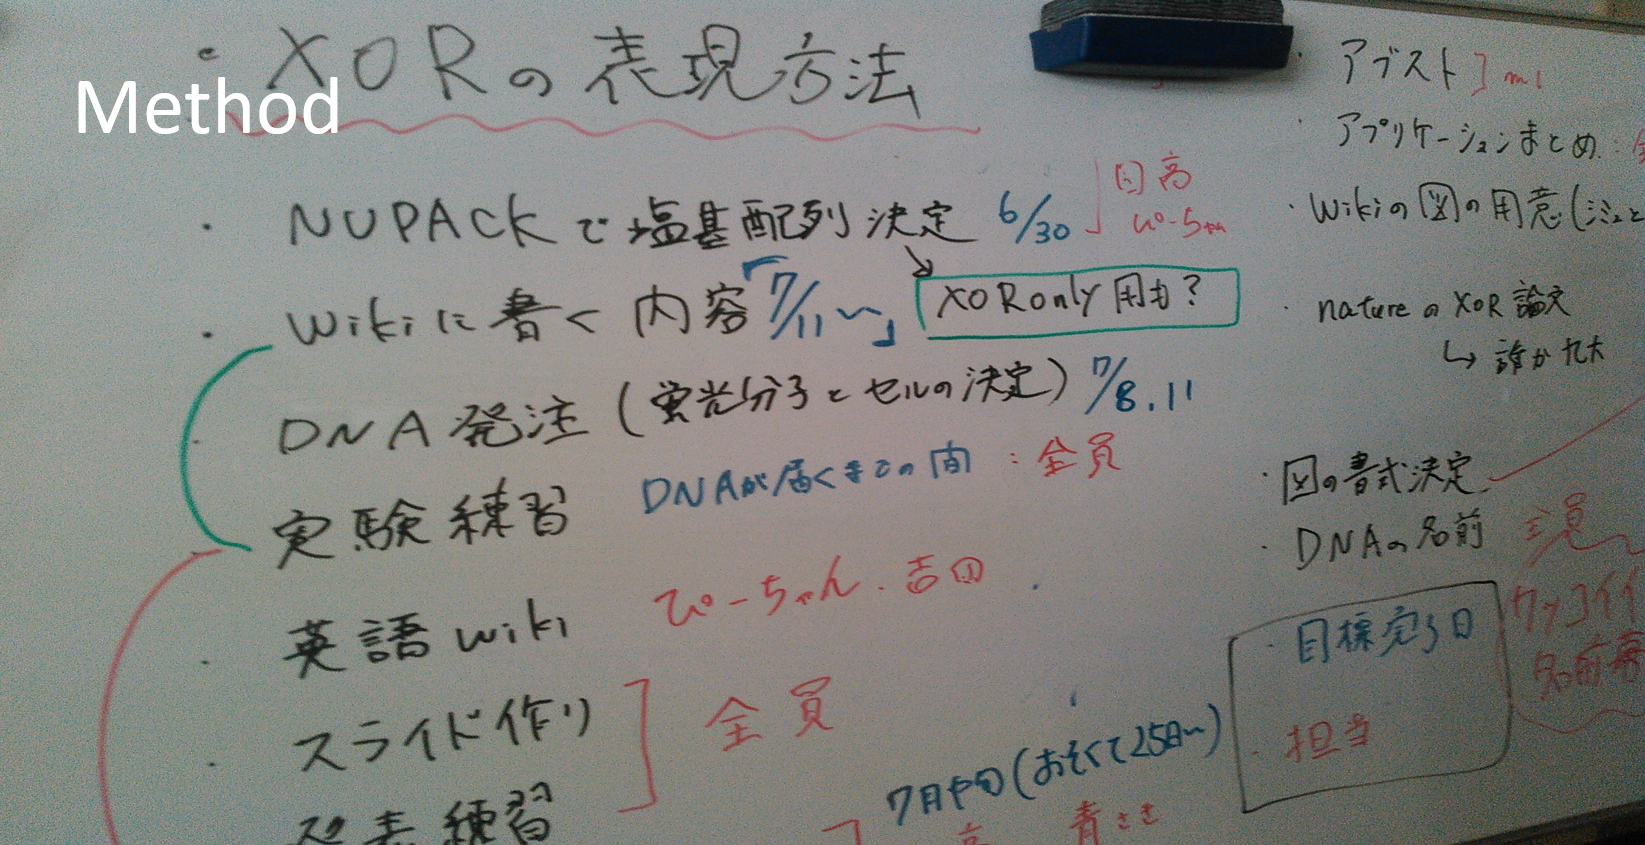 ・XORの表現方法
Method
・NUPACKで塩基配列決定 6/30 日高
ぴーちゃん
・Wikiに書く内容「7/11〜」 XOR only 用も?
・DNA発注(蛍光分子とセルの決定) 7/8.11
実験練習 DNAが届くまでの間:全員
・英語wiki ぴーちゃん.吉田
・スライド作り 全員
発表練習
7月中旬(おそくて25日〜)
青さき
・アブスト
・アプリケーションまとめ:
・Wikiの図の用意(
・natureのXOR論文
↳誰か九大
・図の書式決定
・DNAの名前 全員
カッコイイ
名前募
・目標完了日
・担当